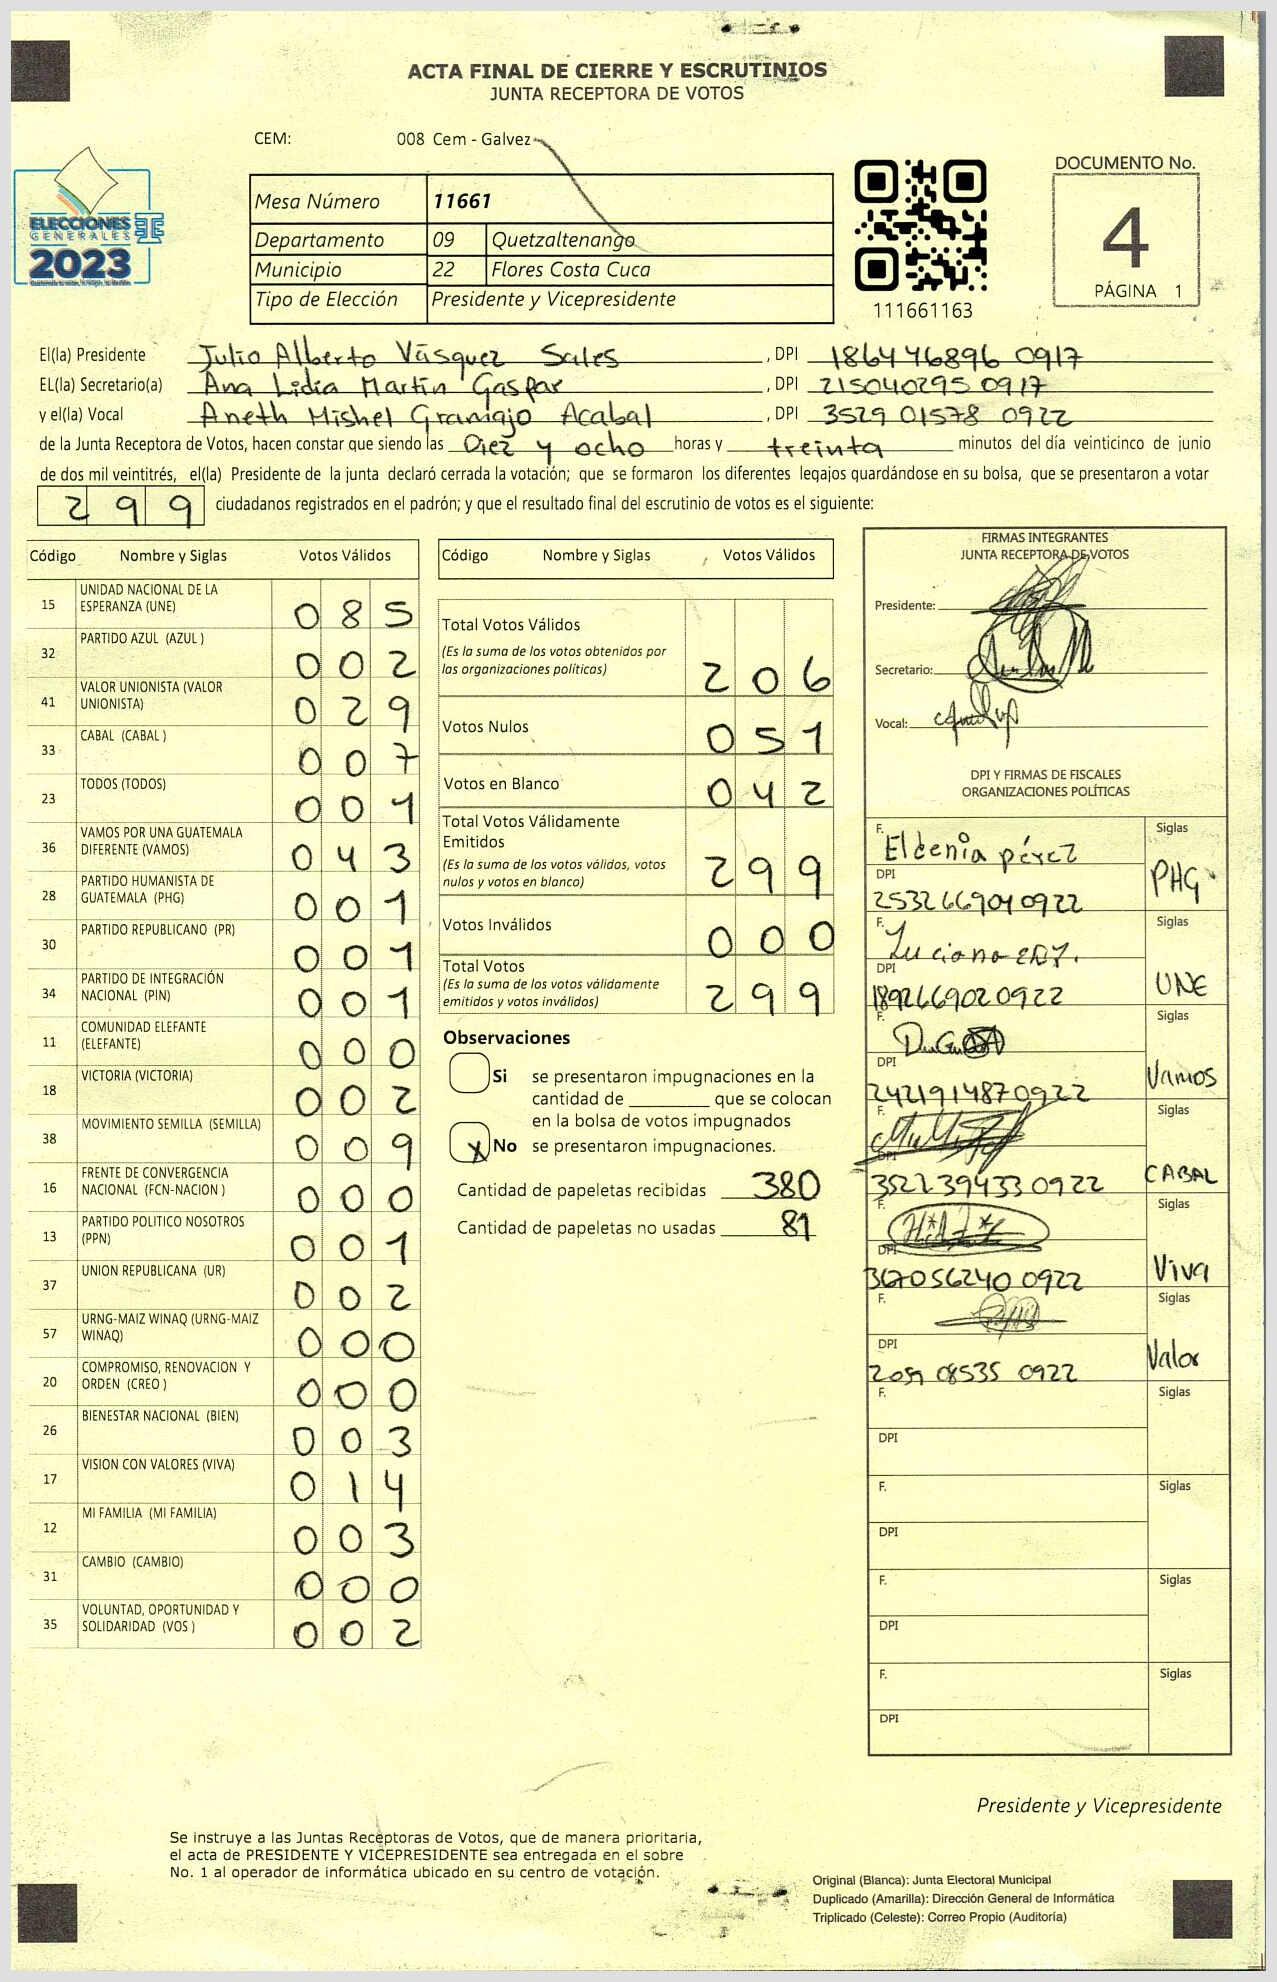 ACTA FINAL DE CIERRE Y ESCRUTINIOS
JUNTA RECEPTORA DE VOTOS
CEM: 008 Cem - Galvez
ELECCIONES
GENERALES
2023
Mesa Número 11661
Departamento 09 Quetzaltenango
Municipio 22 Flores Costa Cuca
Tipo de Elección Presidente y Vicepresidente
111661163
DOCUMENTO No.
4
PÁGINA 1
El(la) Presidente Julio Alberto Vásquez Sales , DPI 186446896 0917
EL(la) Secretario(a) Ana Lidia Martin Gaspar , DPI 215040295 0917
y el(la) Vocal Aneth Mishel Gramajo Acabal , DPI 3529 01578 0922
de la Junta Receptora de Votos, hacen constar que siendo las Diez y ocho horas y treinta minutos del día veinticinco de junio
de dos mil veintitrés, el(la) Presidente de la junta declaró cerrada la votación; que se formaron los diferentes legajos guardándose en su bolsa, que se presentaron a votar
299 ciudadanos registrados en el padrón; y que el resultado final del escrutinio de votos es el siguiente:
Código Nombre y Siglas Votos Válidos
15 UNIDAD NACIONAL DE LA
ESPERANZA (UNE) 085
32 PARTIDO AZUL (AZUL ) 002
41 VALOR UNIONISTA (VALOR
UNIONISTA) 029
33 CABAL (CABAL ) 007
23 TODOS (TODOS) 001
36 VAMOS POR UNA GUATEMALA
DIFERENTE (VAMOS) 043
28 PARTIDO HUMANISTA DE
GUATEMALA (PHG) 001
30 PARTIDO REPUBLICANO (PR) 001
34 PARTIDO DE INTEGRACIÓN
NACIONAL (PIN) 001
11 COMUNIDAD ELEFANTE
(ELEFANTE) 000
18 VICTORIA (VICTORIA) 002
38 MOVIMIENTO SEMILLA (SEMILLA) 009
16 FRENTE DE CONVERGENCIA
NACIONAL (FCN-NACION ) 000
13 PARTIDO POLITICO NOSOTROS
(PPN) 001
37 UNION REPUBLICANA (UR) 002
57 URNG-MAIZ WINAQ (URNG-MAIZ
WINAQ) 000
20 COMPROMISO, RENOVACION Y
ORDEN (CREO ) 000
26 BIENESTAR NACIONAL (BIEN) 003
17 VISION CON VALORES (VIVA) 014
12 MI FAMILIA (MI FAMILIA) 003
31 CAMBIO (CAMBIO) 000
35 VOLUNTAD, OPORTUNIDAD Y
SOLIDARIDAD (VOS ) 002
Código Nombre y Siglas Votos Válidos
Total Votos Válidos
(Es la suma de los votos obtenidos por
las organizaciones políticas) 206
Votos Nulos 051
Votos en Blanco 042
Total Votos Válidamente
Emitidos
(Es la suma de los votos válidos, votos
nulos y votos en blanco) 299
Votos Inválidos 000
Total Votos
(Es la suma de los votos válidamente
emitidos y votos inválidos) 299
Observaciones
Si se presentaron impugnaciones en la
cantidad de ________ que se colocan
en la bolsa de votos impugnados
X No se presentaron impugnaciones.
Cantidad de papeletas recibidas 380
Cantidad de papeletas no usadas 81
FIRMAS INTEGRANTES
JUNTA RECEPTORA DE VOTOS
Presidente:
Secretario:
Vocal:
DPI Y FIRMAS DE FISCALES
ORGANIZACIONES POLÍTICAS
F. Eldenia pérez Siglas
DPI PHG
2532669040922
F. Luciano Siglas
DPI UNE
1892669020922
F. Siglas
DPI Vamos
2421914870922
F. Siglas
DPI CABAL
352239433 0922
F. Siglas
DPI Viva
367056240 0922
F. Siglas
DPI Valor
2059 08535 0922
F. Siglas
DPI
F. Siglas
DPI
F. Siglas
DPI
F. Siglas
DPI
Presidente y Vicepresidente
Se instruye a las Juntas Receptoras de Votos, que de manera prioritaria,
el acta de PRESIDENTE Y VICEPRESIDENTE sea entregada en el sobre
No. 1 al operador de informática ubicado en su centro de votación.
Original (Blanca): Junta Electoral Municipal
Duplicado (Amarilla): Dirección General de Informática
Triplicado (Celeste): Correo Propio (Auditoría)